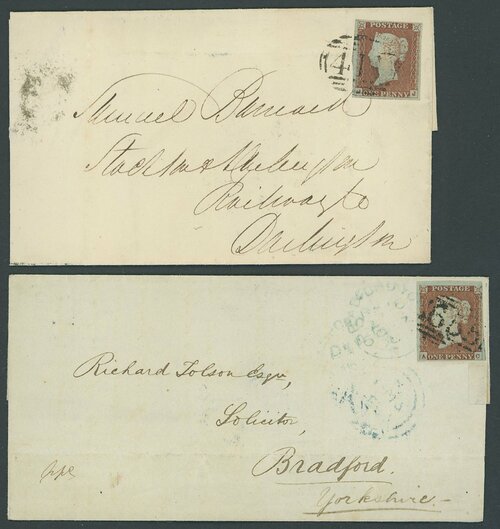 POSTAGE
ONE PENNY
Samuel Barnard
Stockton & Darlington
Railway Co
Darlington
POSTAGE
A ONE PENNY C
Richard Tolson Esqr,
Solicitor,
Bradford.
Yorkshire